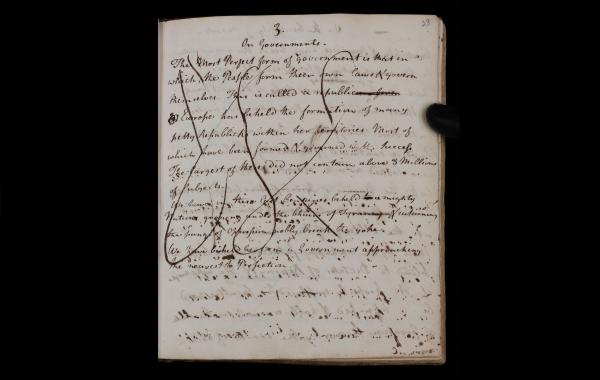 23
3.
On Governments.
The Most Perfect form of Government is that in
which the People form their own Laws & govern
themselves. This is called a republic
Europe has beheld the formation of many
petty republicks within her territories Most of
which have been formed & governed with success
The largest of these did not contain above 3 Millions
of Subjects.
We have in these beheld a mighty
Nation groaning under the chains of Tyranny
the of Oppression nobly break the yoke.
We have beheld her form a Government approaching
the nearest to Perfection